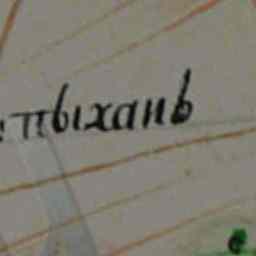 пыхань